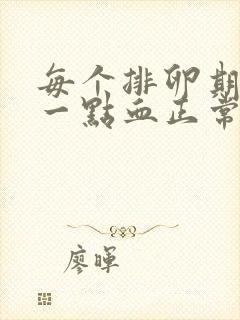 每个排卵期
一點血正常
廖暉